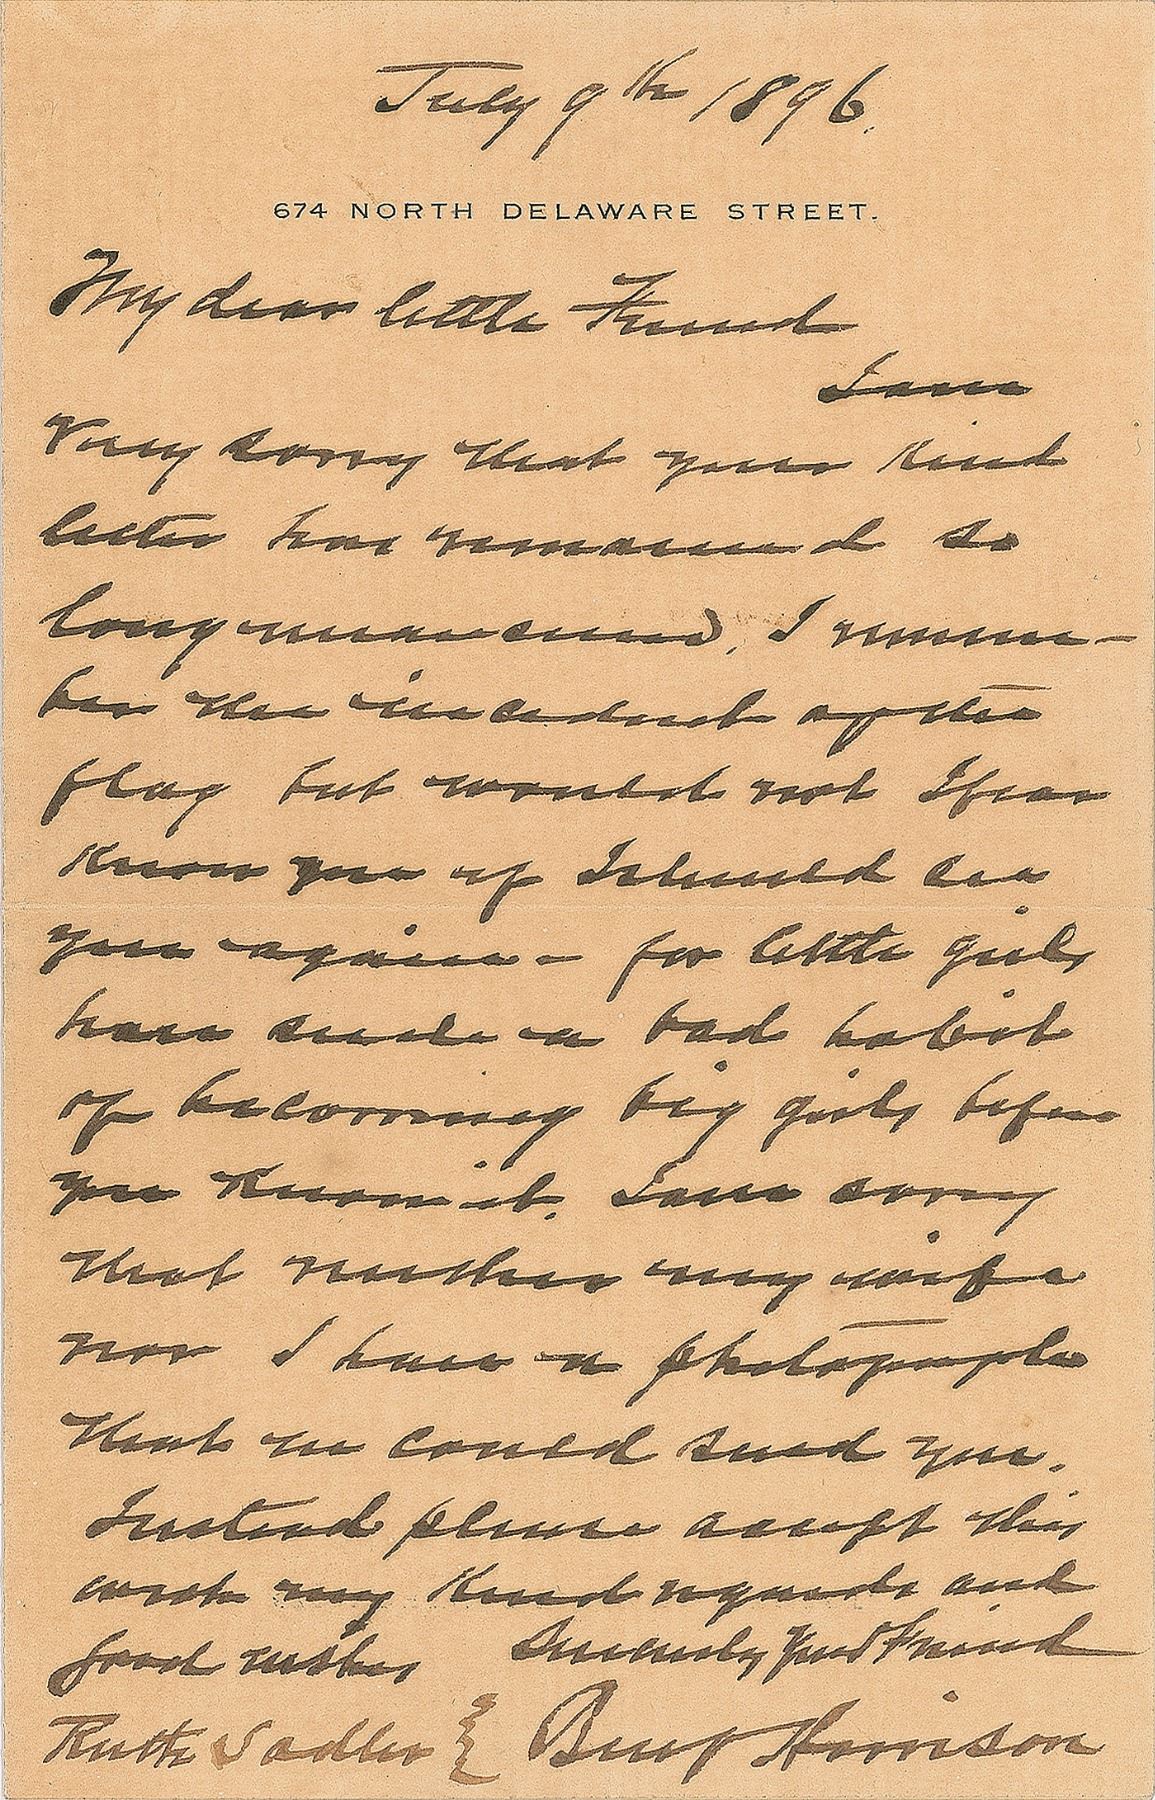 July 9th 1896.
674 NORTH DELAWARE STREET.
My dear little Friend
I am
very sorry that your kind
letter has remained so
long unanswered. I remem-
ber the incident of the
flag but would not I fear
know you if I should see
you again - for little girls
have such a bad habit
of becoming big girls before
you know it. I am sorry
that neither my wife
nor I have a photograph
that we could send you.
Instead please accept this
with my kind regards and
good wishes Sincerely Your Friend
Ruth Sadler } Benj Harrison